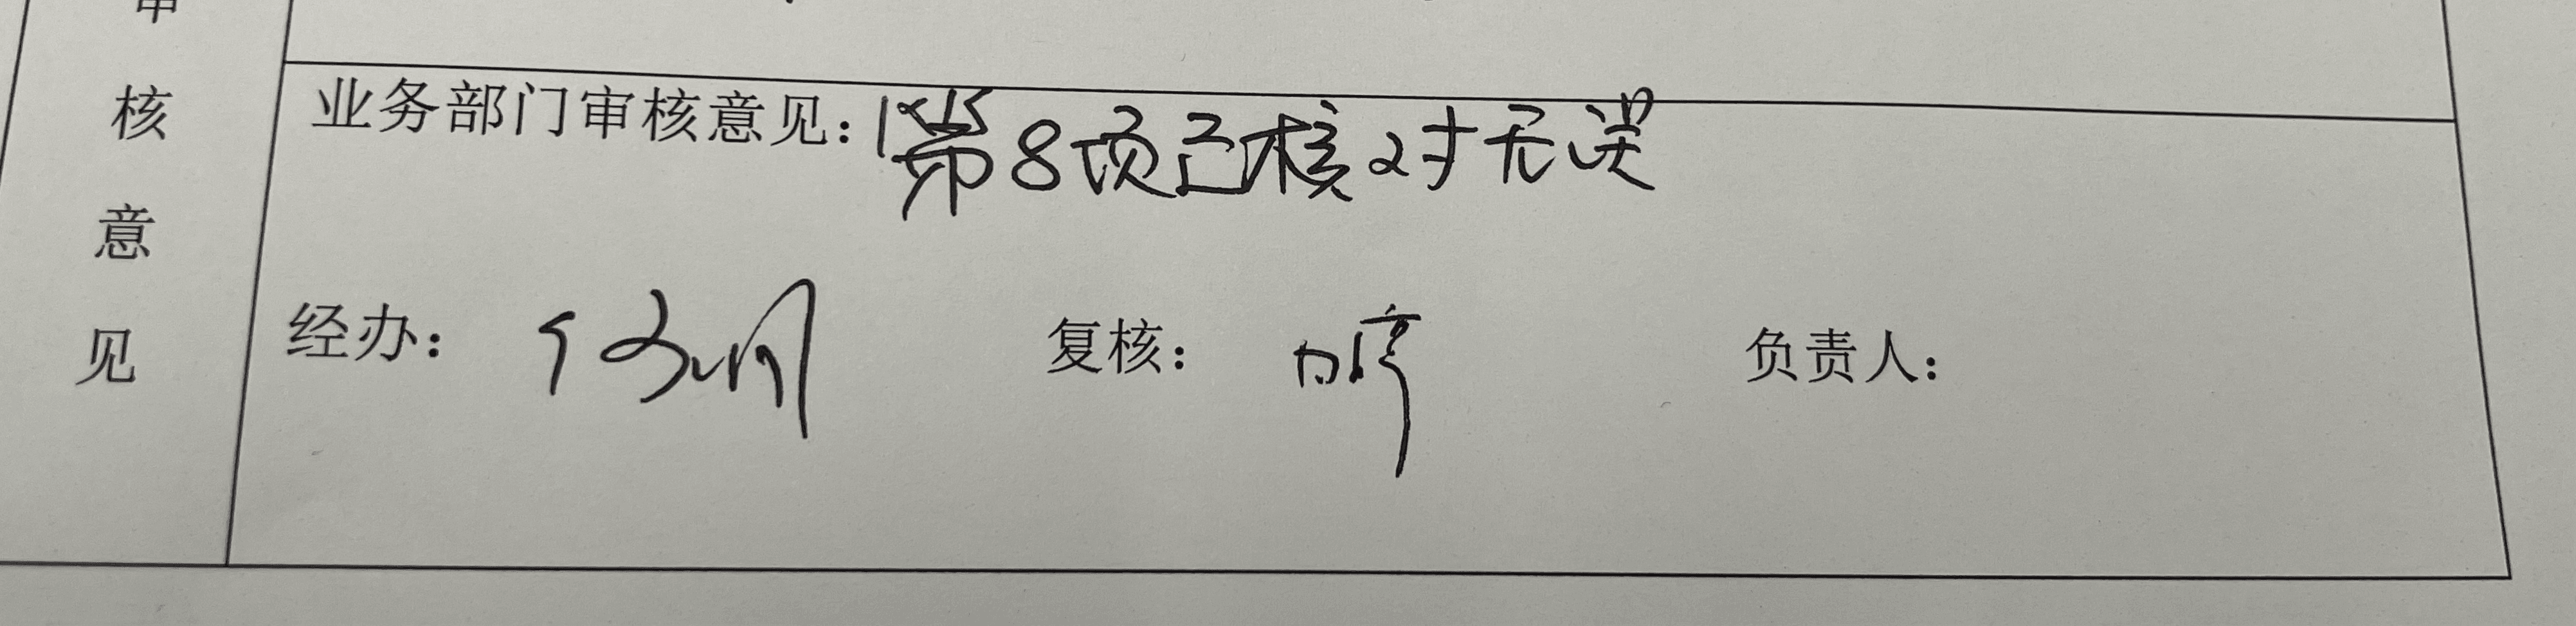 核
意
见
业务部门审核意见：第8项已核对无误
经办：
复核：
负责人：